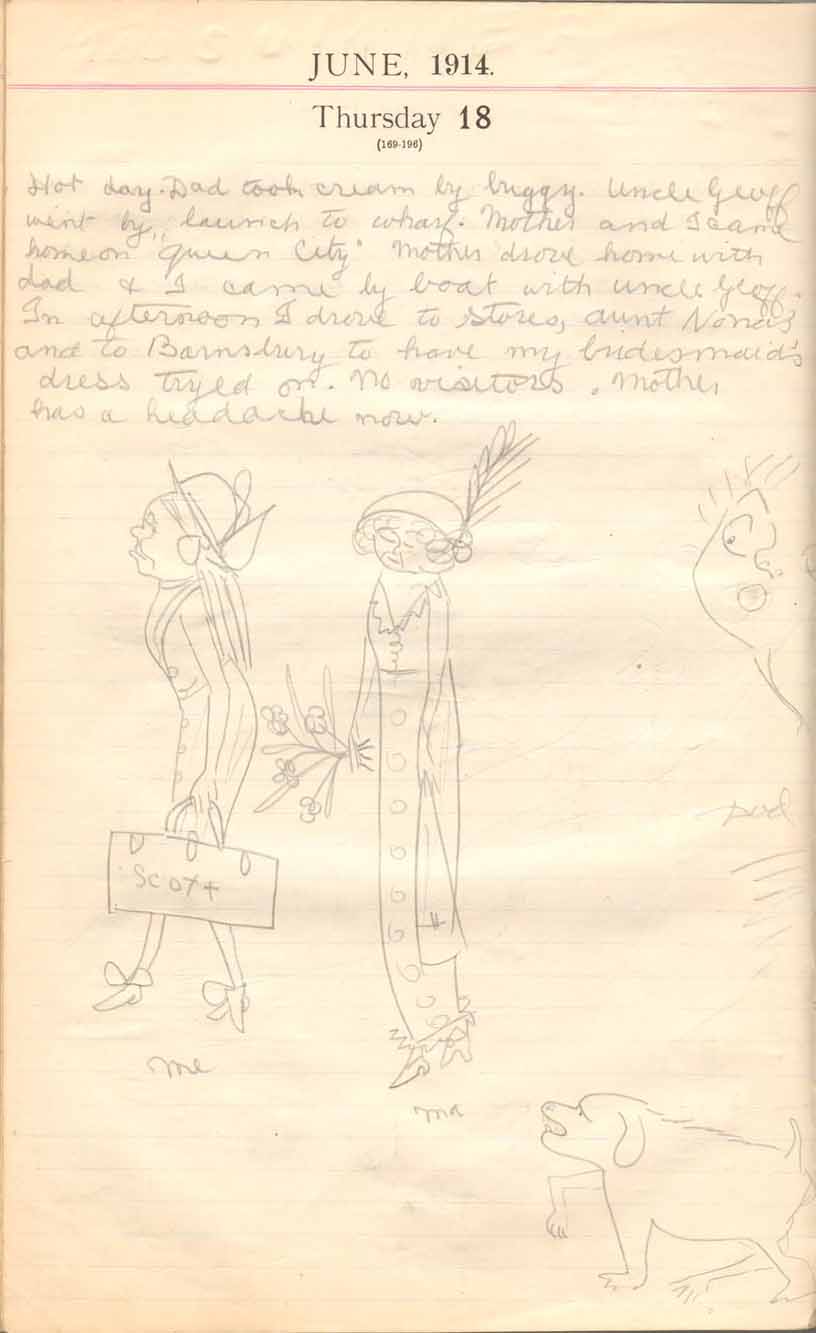 JUNE, 1914.
Thursday 18
(169-196)
Hot day. Dad took cream by buggy. Uncle Geoff
went by launch to wharf. Mother and I came
home on "Queen City" Mother drove home with
dad & I came by boat with uncle Geoff.
In afternoon I drove to Stores, aunt Nona's
and to Barnsbury to have my bridesmaid's
dress tryed on. No visitors. Mother
has a headache now.
Scott
me
ma